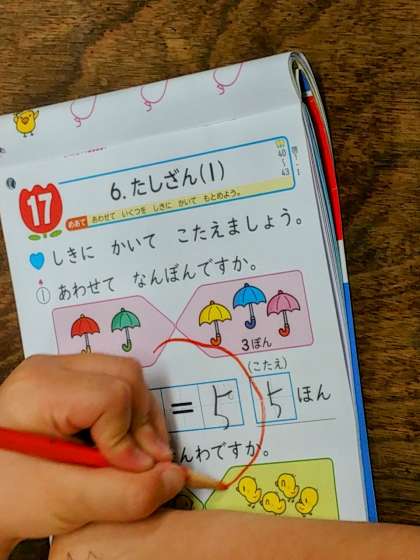 17
6.たしざん(1)
40
〜
43
めあて あわせて いくつを しきに かいて もとめよう。
しきに かいて こたえましょう。
① あわせて なんぼんですか。
3ぼん
(こたえ)
= 5 5 ほん
わですか。